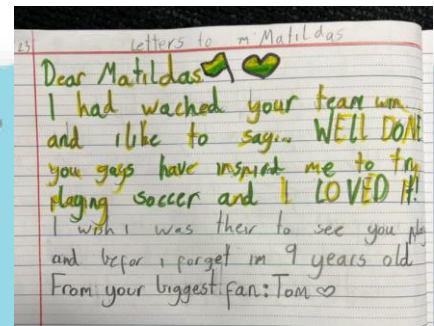 23 Letters to m Matildas
Dear Matildas
I had wached your team win
and i like to say... WELL DONE
you gays have inspired me to try
playing soccer and I LOVED It!
I wish i was their to see you play
and befor i forget im 9 years old
From your biggest fan: Tom